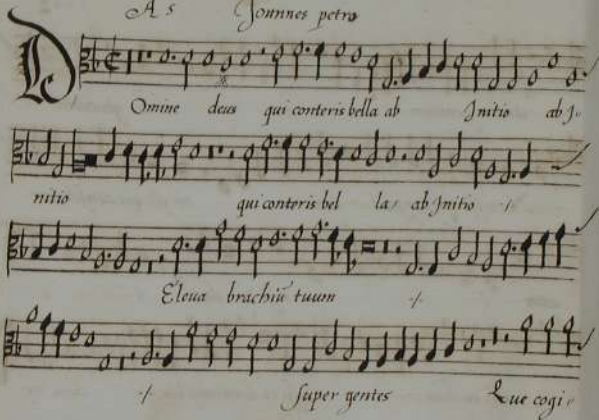 A 5 Joannes petro
Domine deus qui conteris bella ab Initio ab I-
nitio qui conteris bel la, ab Initio ./.
Eleua brachiū tuum ./.
./. super gentes Que cogi-